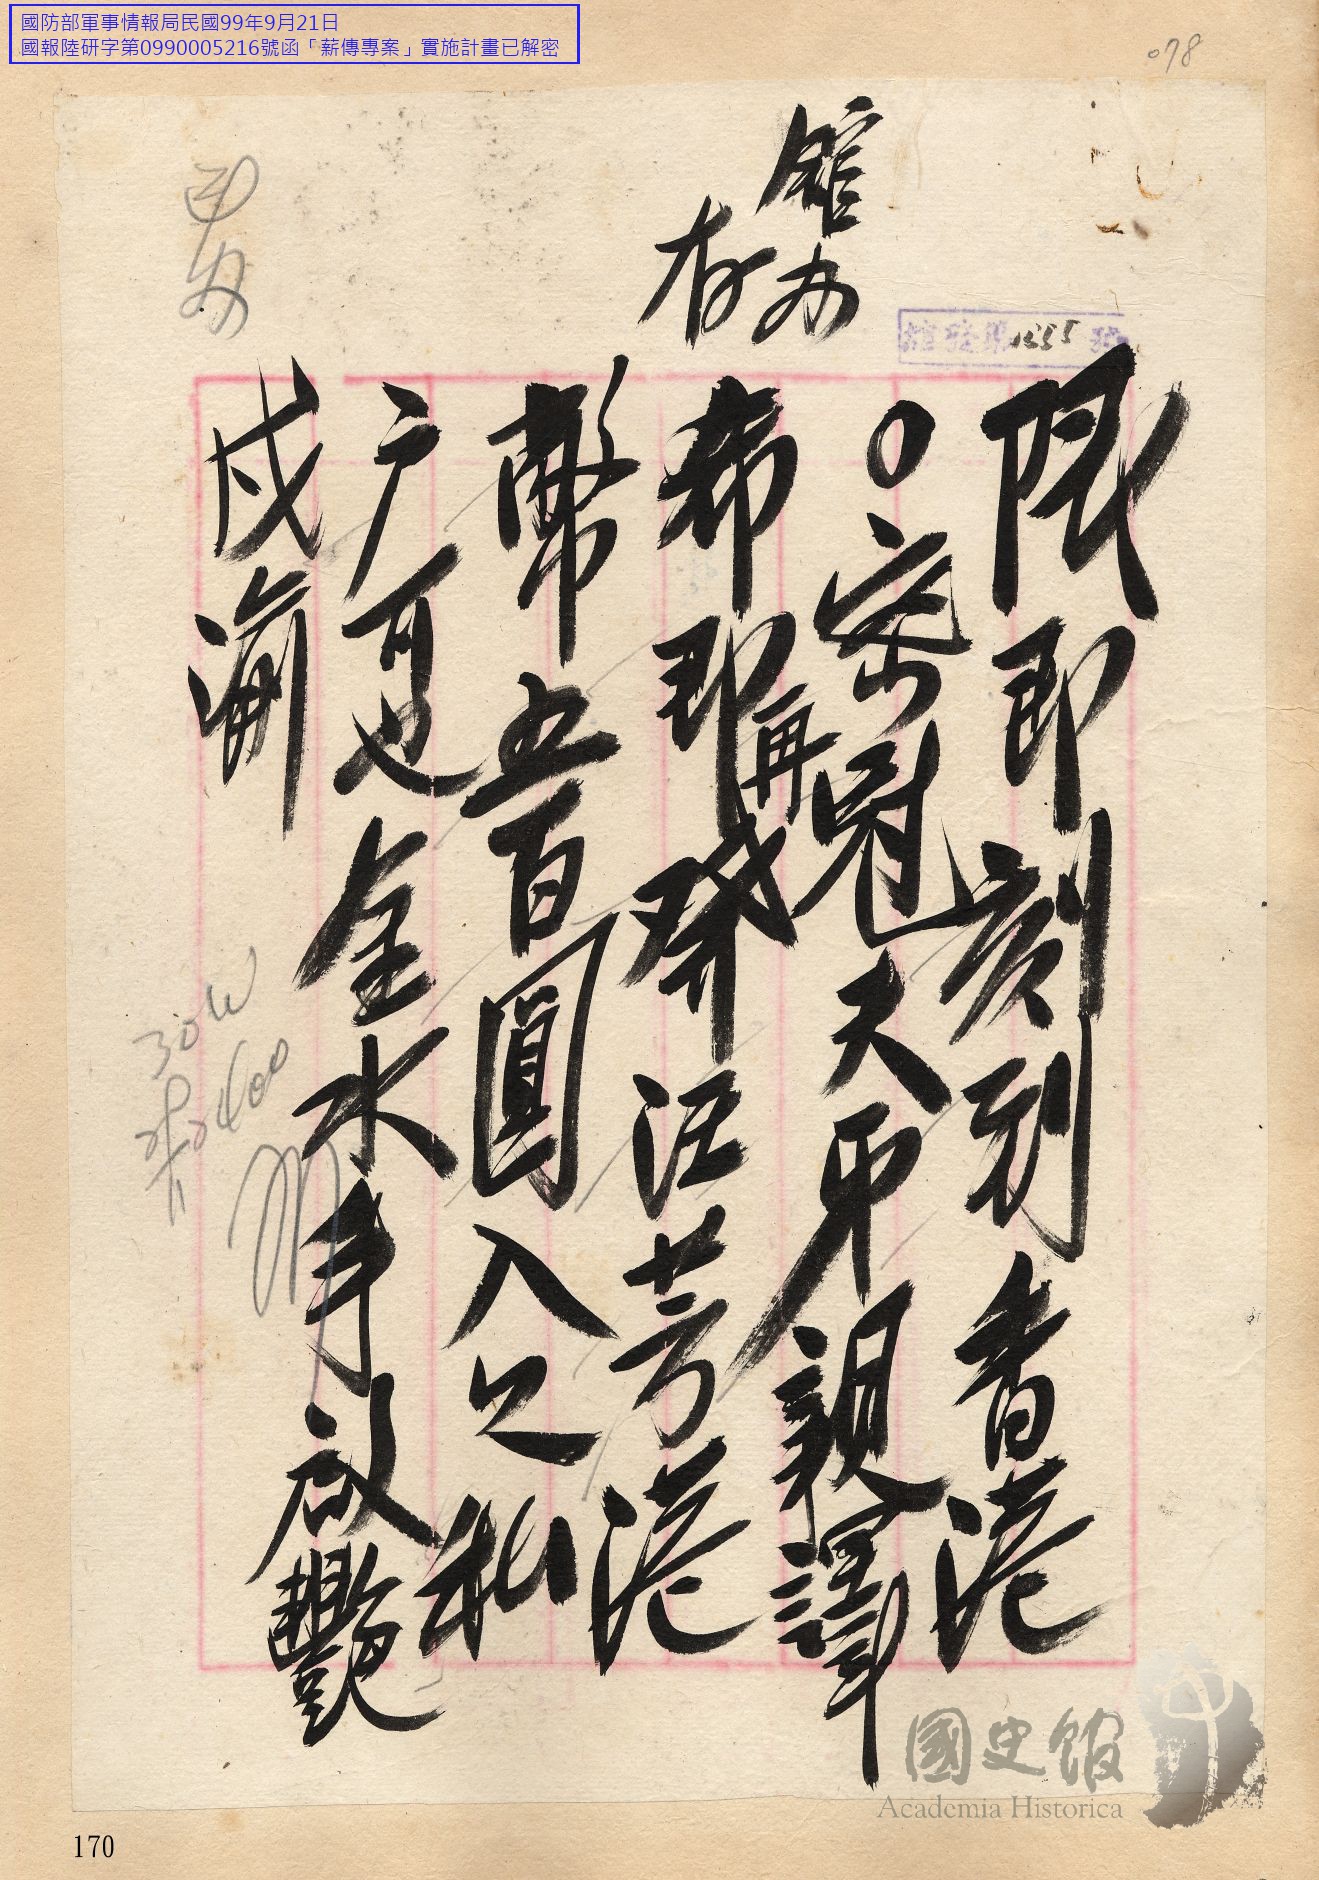 國防部軍事情報局民國99年9月21日
國報陸研字第0990005216號函「薪傳專案」實施計畫已解密
078
館办
存
1555 號
限即刻到香港
○密冠夫弟親譯
希即再發汪芳港
幣五百圓入已私
戶可也金水手啟艷
戌渝
30W
國史館
Academia Historica
170